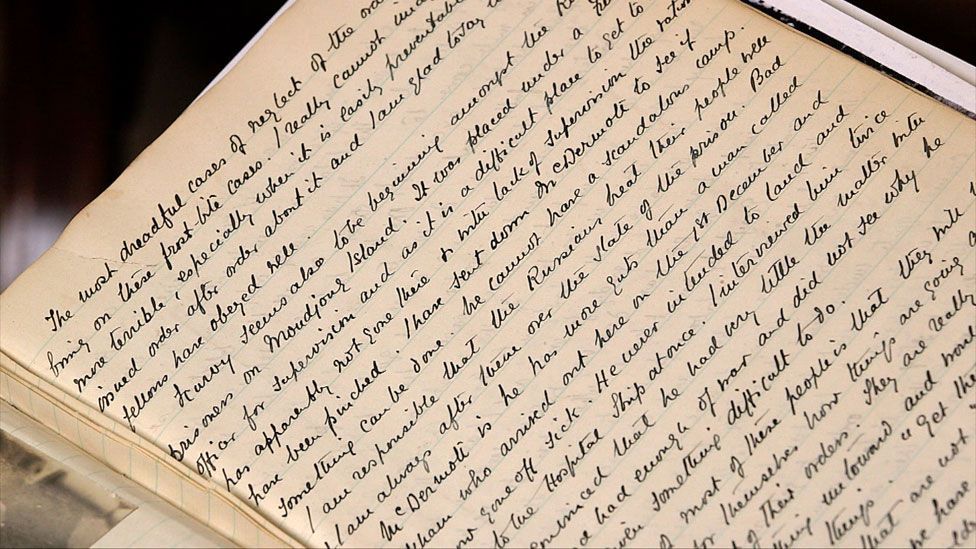 The most dreadful cases of neglect of the
bring on these frost-bite cases. I really cannot
more terrible, especially when it is easily preventable
order after order about it and I am glad today
fellows have obeyed well.
Scurvy seems also to be beginning amongst the
prisoners on Moudjoug Island. It was placed under a
officer for supervision and as it is a difficult place to get to
has apparently not gone there & with lack of supervision the ration
have been pinched. I have sent down McDermott to see if
something can be done he cannot have a scandalous camp.
I am responsible that the Russians treat their people well
I am always after them over the state of the prison. Bad
McDermott is he has more guts than a man called
who arrived out here on the 1st December and
now gone off sick. He never intended to land and
to the Hospital Ship at once. I interviewed him twice
convinced that he had very little the matter with
and had enough of war and did not see why he
something difficult to do.
most of these people is that they will
themselves how things are going
of their orders. They are really
thing untoward and
things. "Get the
that are not
have